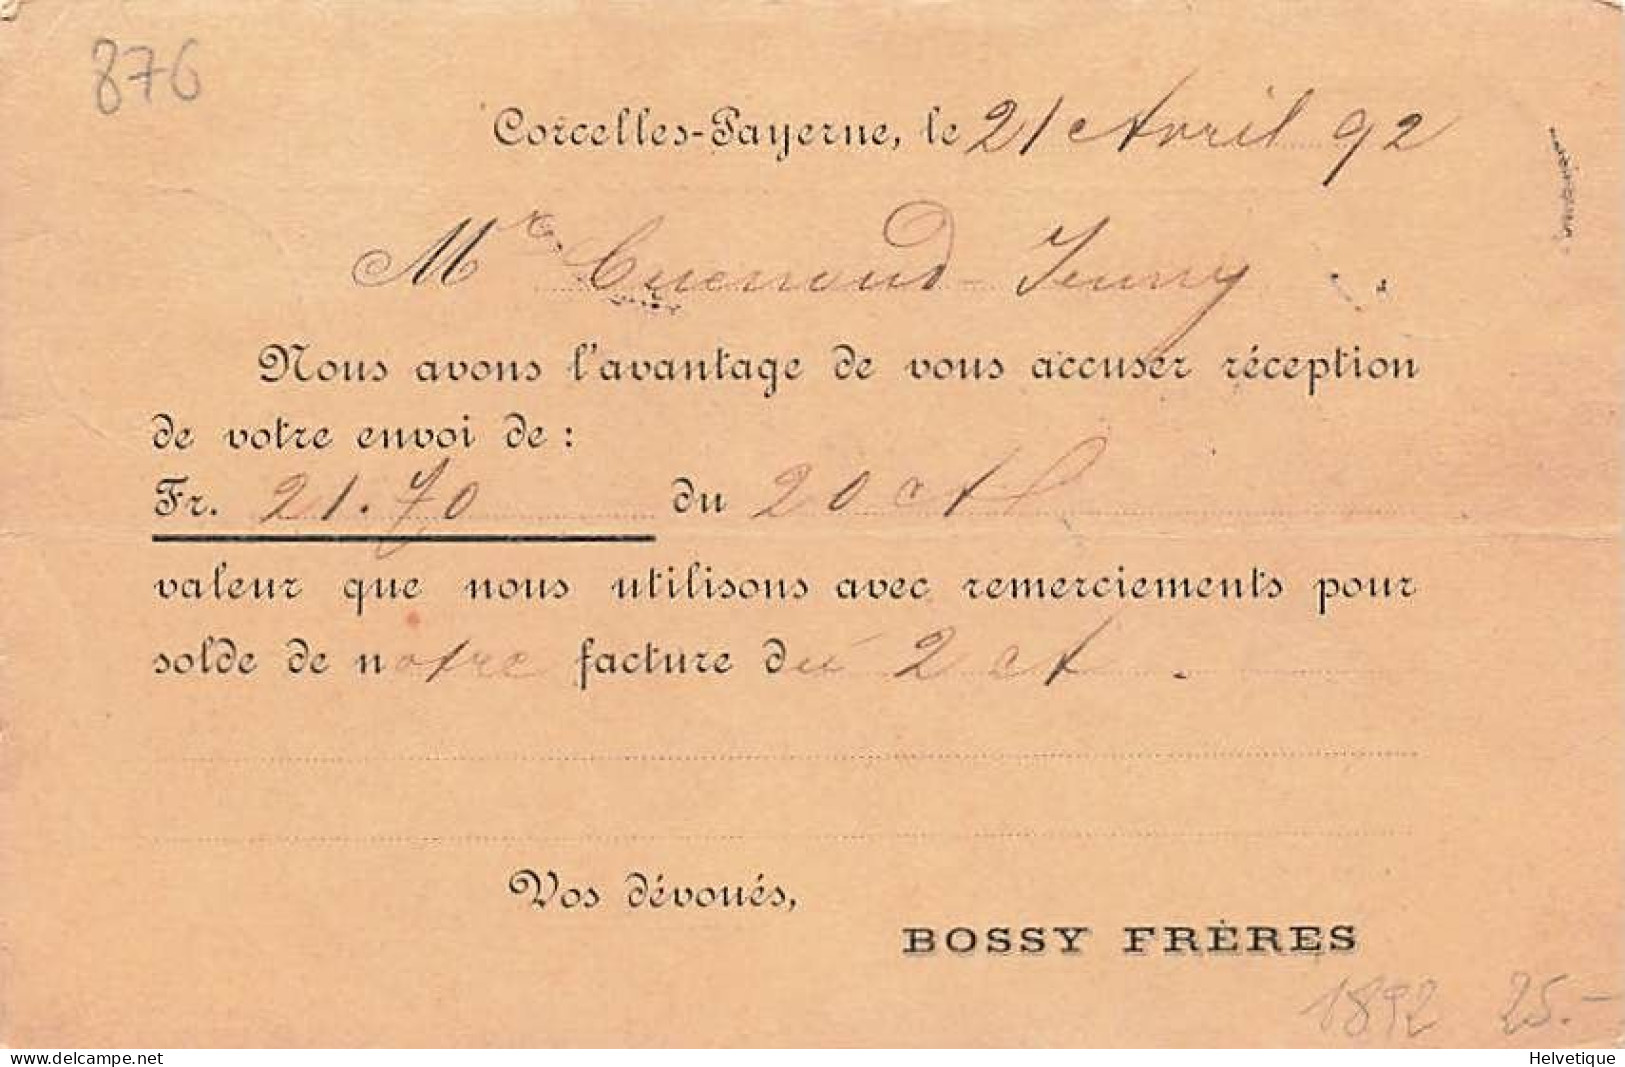 876
Corcelles-Payerne, le 21 Avril 92
Mr Cuenoud-
Nous avons l'avantage de vous accuser réception
de votre envoi de :
Fr. 21.70 du 20 ct
valeur que nous utilisons avec remerciements pour
solde de notre facture du 2 ct.
Vos dévoués,
BOSSY FRÈRES
1892 25.-
www.delcampe.net
Helvetique